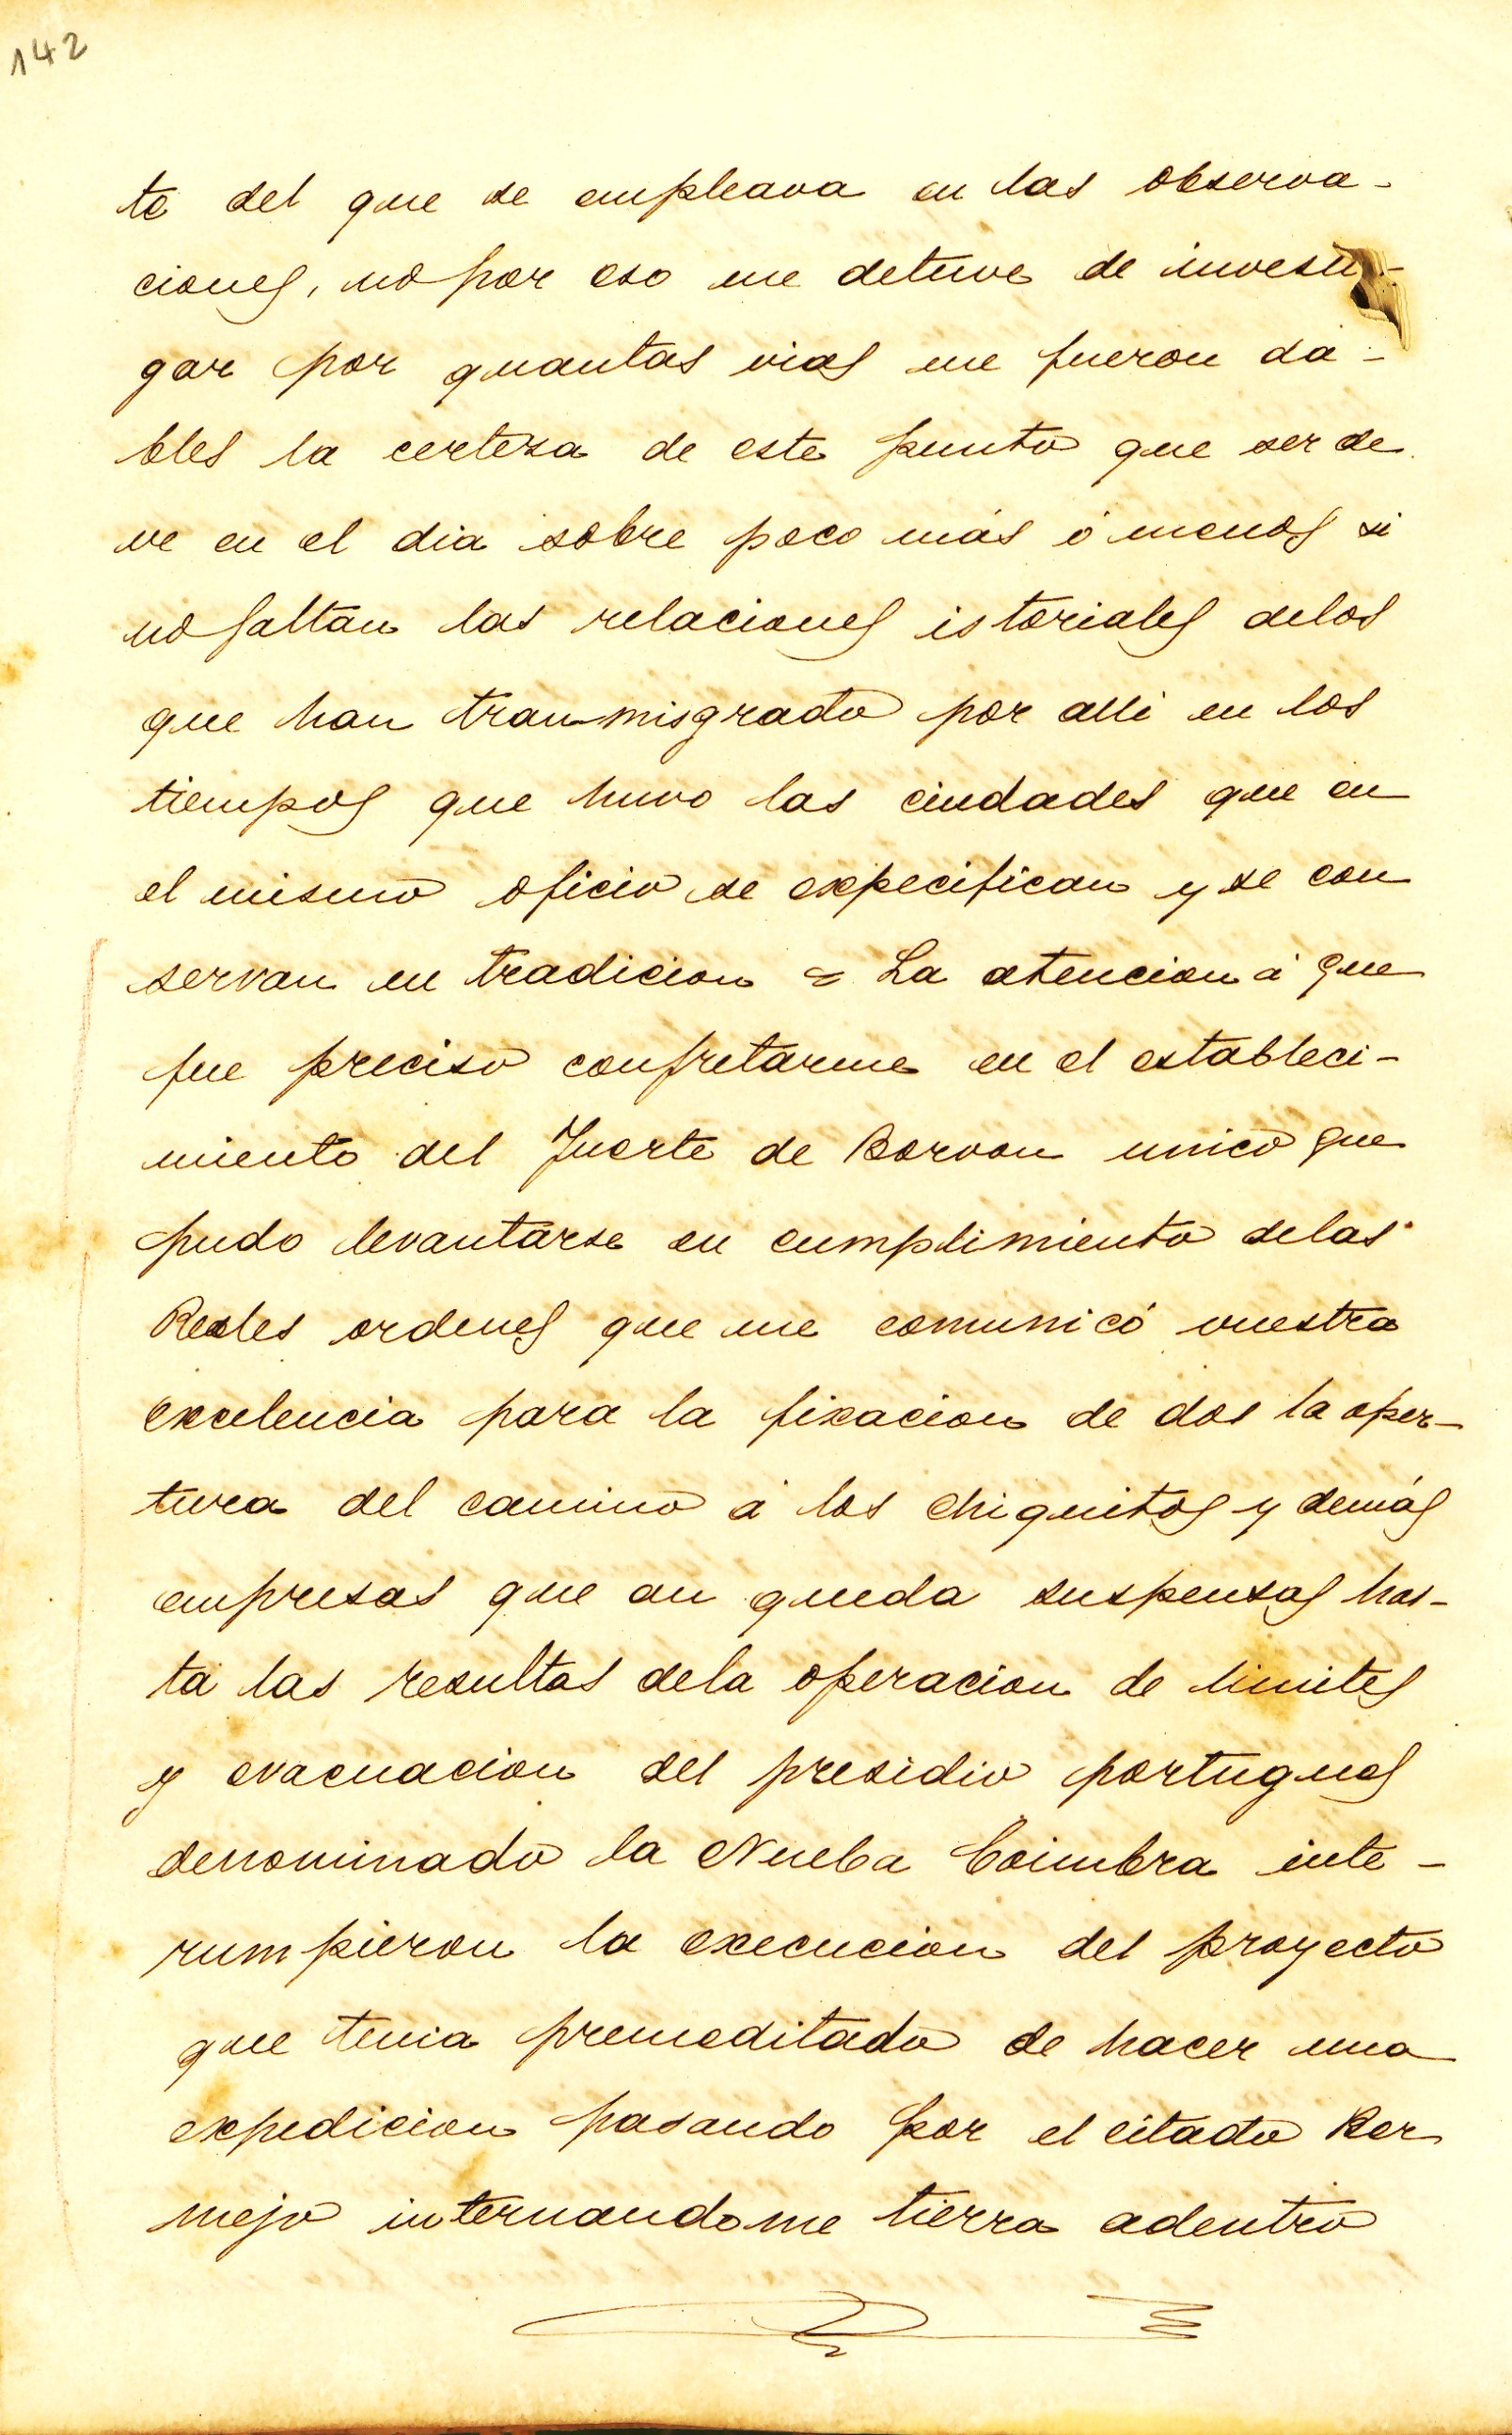 142
te del que se empleava en las observa-
ciones, no por eso me detuve de investi-
gar por quantas vias me fueron da-
bles la certeza de este punto que ser de
ve en el dia sobre poco más ó menos si
no faltan las relaciones istoriales delos
que han tranmisgrado por alli en los
tiempos que huvo las ciudades que en
el mismo oficio se expecifican y se con
servan en tradicion = La atencion á que
fue preciso confretarme en el estableci-
miento del Fuerte de Borvon unico que
pudo levantarse en cumplimiento delas
Reales ordenes que me comunicó vuestra
excelencia para la fixacion de dos la aper-
tura del camino á los chiquitos y demás
empresas que an queda suspensas has-
ta las resultas dela operacion de limites
y evacuacion del presidio portugues
denominado la Nueba Coimbra inte-
rumpieron la execucion del proyecto
que tenia premeditado de hacer una
expedicion pasando por el citado Ber
mejo internandome tierra adentro